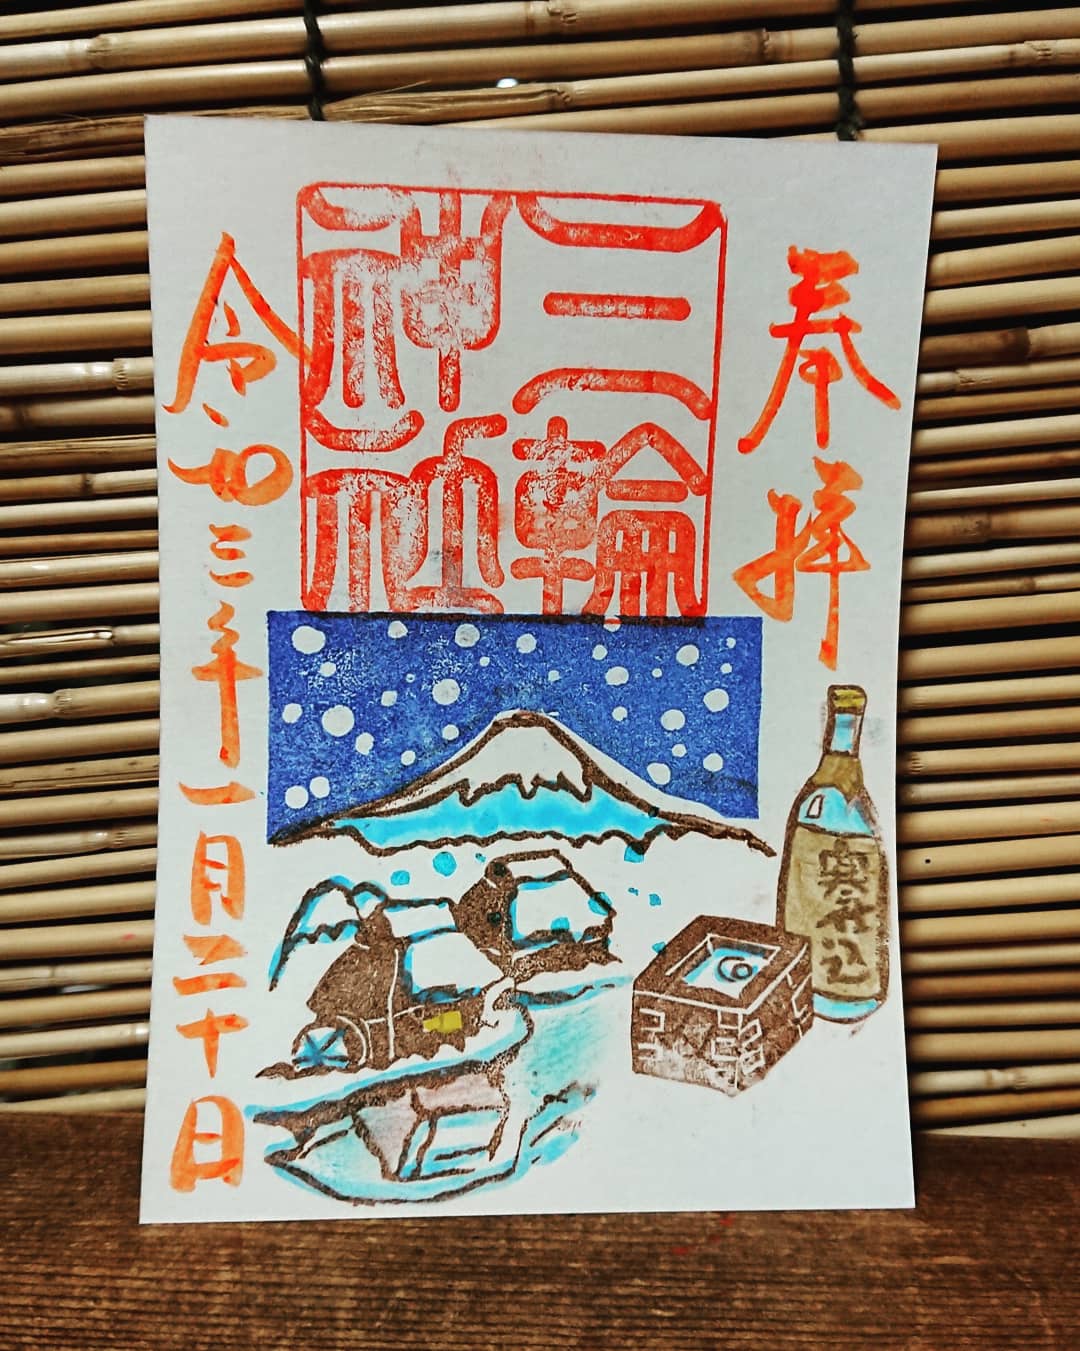 奉拝
三輪
神社
寒仕込
令和三年一月二十日